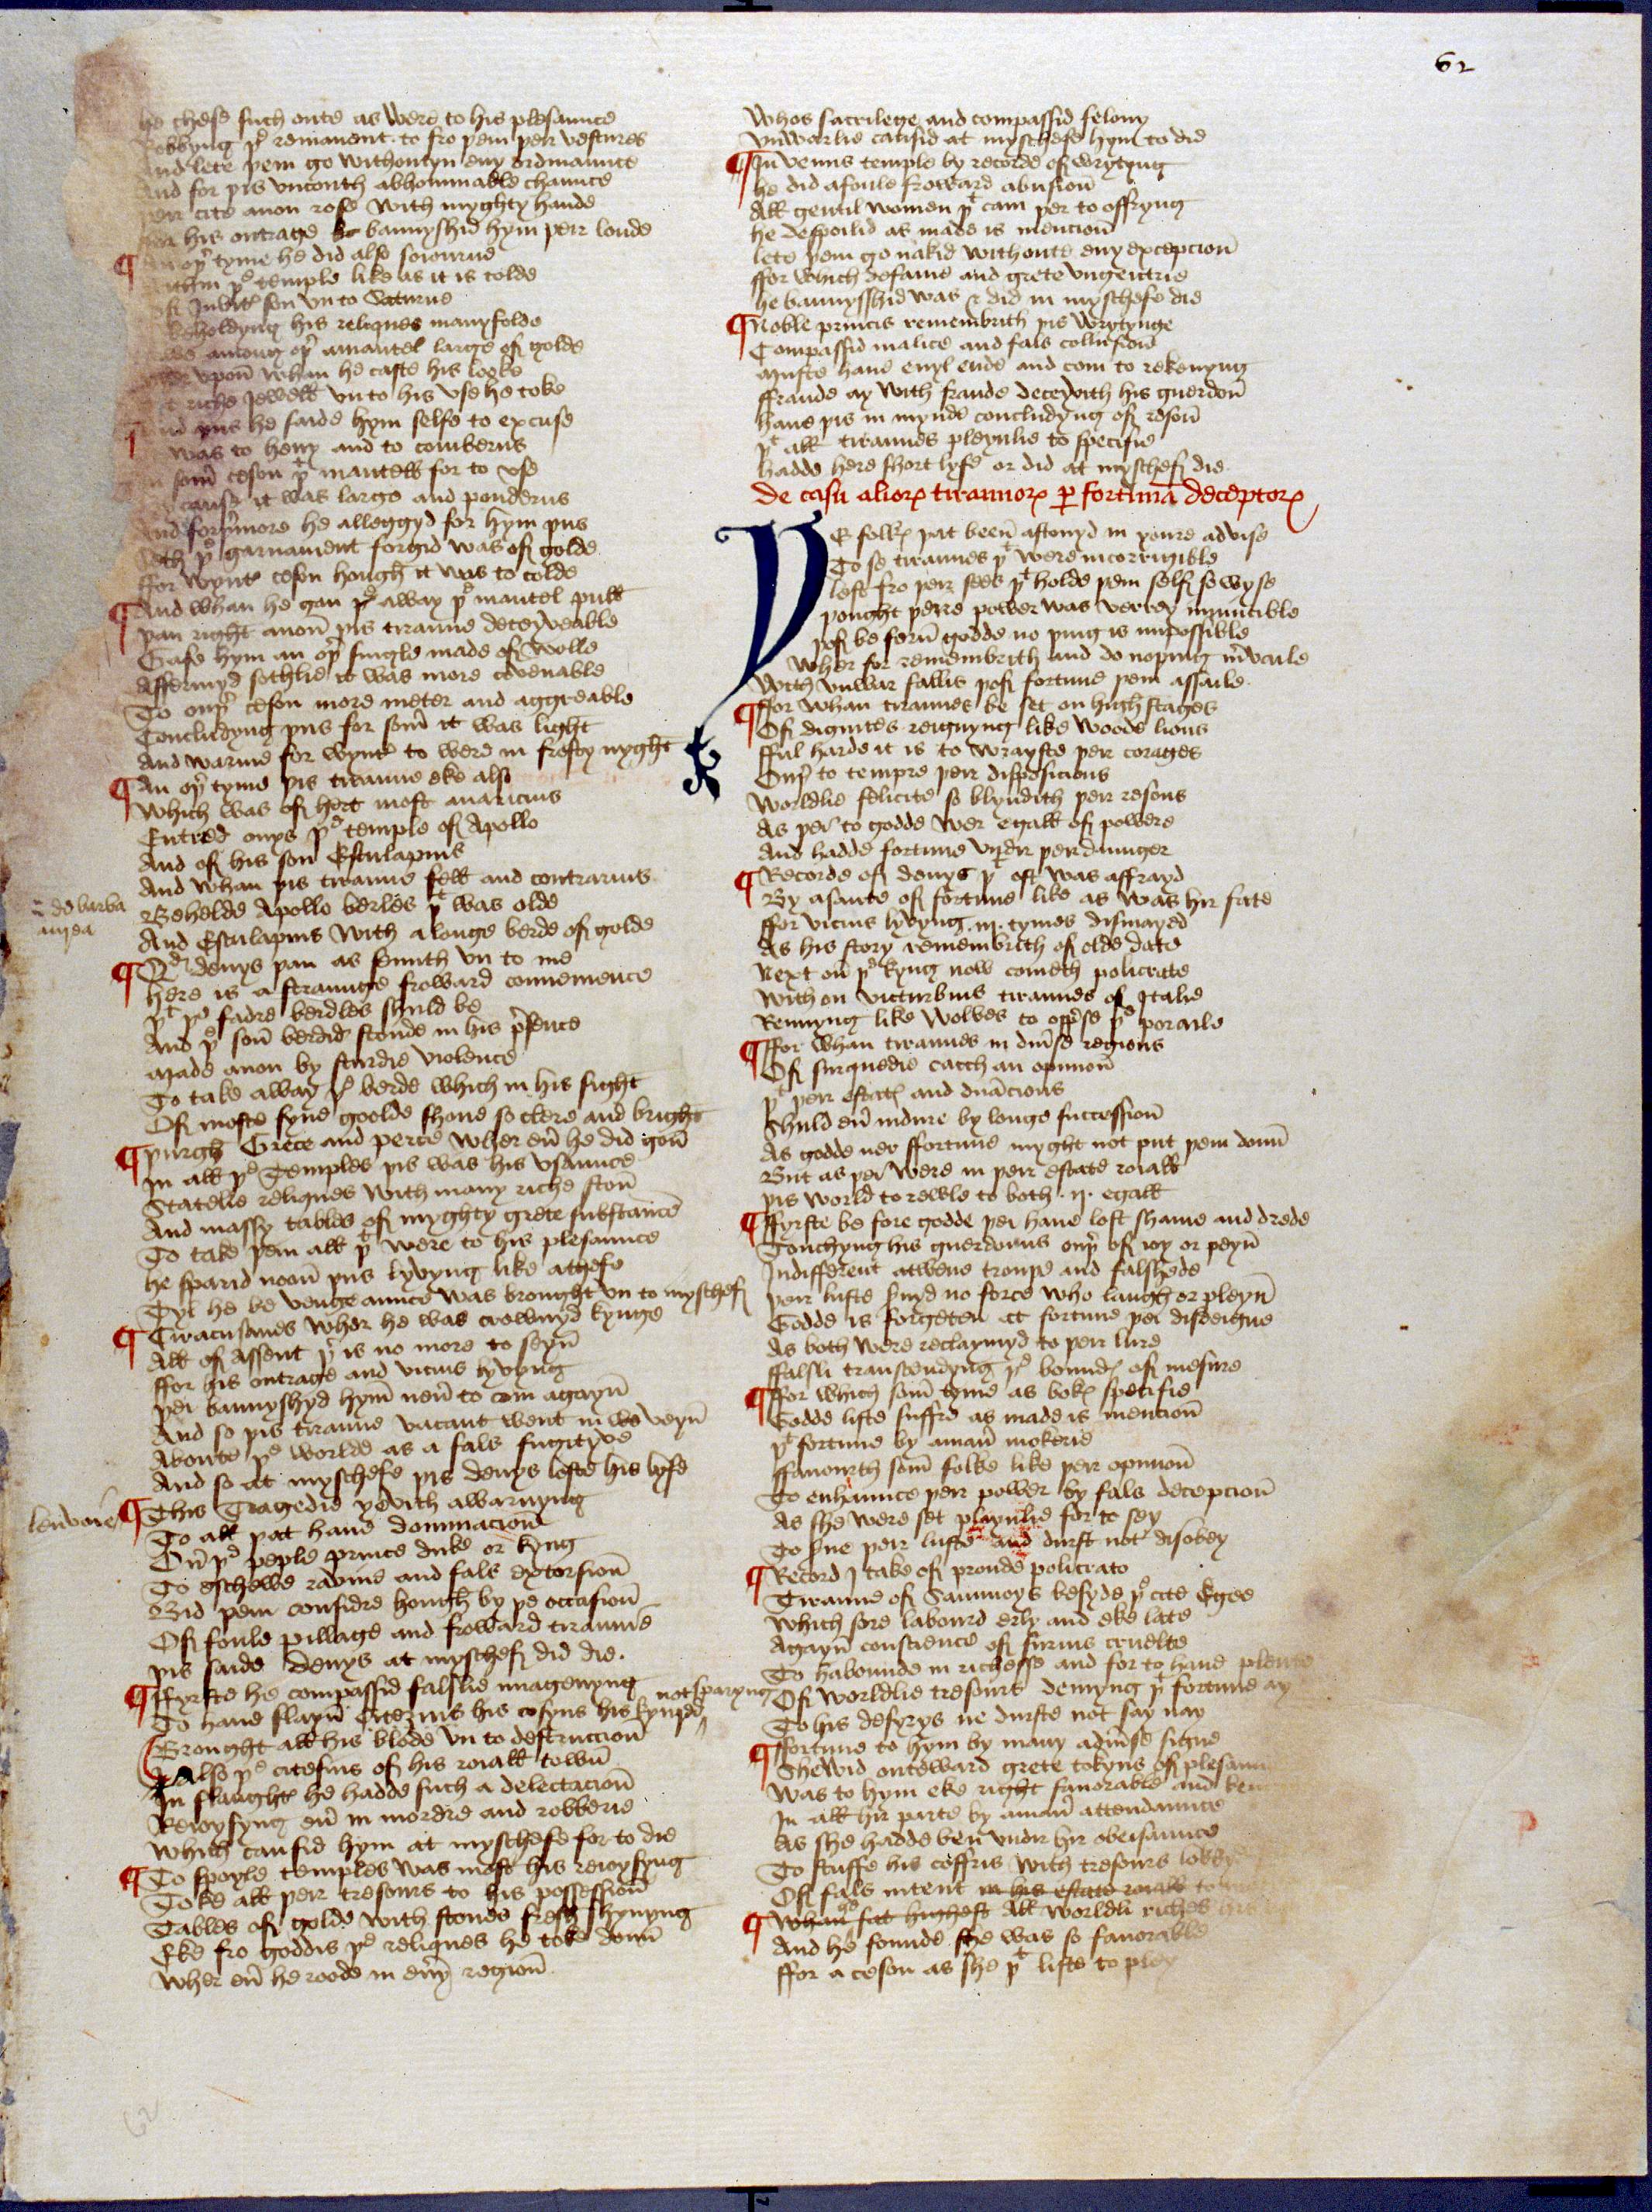 62
he chese such onte as were to his plesaunce
Robbyng þe remanent. to fro þem þer vestures
And lete þem go withoutyn eny ordinaunce
And for þis vncouth abhominable chaunce
þeir cite anon rose with myghty hande
his outrage bannyshid hym þeir londe
¶ An oþr tyme he did also soiourne
Within þe temple like as it is tolde
Of Jubit son vn to Saturne
Beholdyng his reliques manyfolde
among oþr a mantel large of golde
vpon whan he caste his looke
riche Jewell vn to his vse he toke
¶ And þus he saide hym selfe to excuse
was to hevy and to comberus
In som ceson þt mantell for to vse
cause it was large and ponderus
And forþrmore he alleggyd for hym þus
With þe garnament forgid was of golde
ffor wynt ceson hough it was to colde
¶ And whan he gan þr away þe mantel pull
þan right anon þis tiranne deceyveable
Gafe hym an oþr single made of wolle
Affermyd sothlie it was more covenable
To euyr ceson more meter and aggreable
Concludyng þus for som it was light
And warme for wynt to were in frosty nyght
¶ An oþr tyme þis tiranne eke also
Which was of hert most auaricius
Entred onys þe temple of Apollo
And of his son Esculapius
And whan þis tiranne fell and contrarius
Behelde Apollo berles þt was olde
de barba
aurea
And Esculapius with a longe berde of golde
¶ Qd denys þan as summth vn to me
Here is a straunge froward conuenience
þt þe fadre berdles shuld be
And þe son berdid stonde in his presence
Made anon by sturdie violence
To take away þe berde which in his sight
Of moste fyne goolde shone so clere and bright
¶ þurgh Grece and perce wher eur he did gon
In all þe Temples þis was his vsaunce
Statelie reliques with many riche ston
And massy tables of myghty grete substance
To take þem all þt were to his plesaunce
he sparid noon þus lyvyng like a thefe
Tyl he be vengeaunce was brought vn to myschef
¶ Ciracusanes wher he was crownyd kynge
All of assent þr is no more to seyn
ffor his outrage and vicius lyvyng
þei bannyshyd hym neur to com agayn
And so þis tiranne vacant went in we veyn
Aboute þe worlde as a fals fugityve
And so at myschefe þis denys loste his lyfe
lenvoie ¶ This Tragedie yevith a warnyng
To all þat haue dominacion
Our þe peple prince duke or kyng
To eschewe ravine and fals extorsion
Bid þem considre hough by þe occasion
Of foule pillage and froward tirannie
þis saide denys at myschef did die.
¶ ffyrste he compassid falslie imagenyng
To haue slayn Citezins his cosyns his kynred not sparyng
Brought all his blode vn to destruccion
Also þe citesins of his roiall town
In slaught he hadde such a delectacion
Reioysyng eur in mordre and robberie
Which causid hym at myschefe for to die
¶ To spoyle temples was most his reioysyng
Toke all þeir tresours to his possession
Tables of golde with stones fresh shynyng
Eke fro goddis þe reliques he toke doun
Wher eur he roode in eury region
Whos sacrilege and compassid felony
Vnwarlie causid at myschefe hym to die
¶ In venus temple by recorde of wrytyng
he did a foule froward abusion
All gentil women þt cam þer to offryng
he despoilid as made is mencion
lete þem go nakid withoute eny excepcion
ffor which defame and grete vngentrie
he bannysshid was & did in myschefe die
¶ Noble princis remembrith þis wrytynge
Compassid malice and fals collusion
Muste haue euyl ende and com to rekenyng
ffraude ay with fraude deceyvith his guerdon
haue þis in mynde concludyng of reson
þt all tirannes pleynlie to specifie
hadde here short lyfe or did at myschef die.
De casu aliorum tirannorum per fortunam deceptorum
Ye folk þat been astonyd in youre advise
To se tirannes þt were incorrigible
loste fro þeir sees þt holde þem self so wyse
þought þeire power was verrey invincible
þof be forn godde no þing is impossible
Wher for remembrith and do noþing mrvaile
With vnwar fallis þof fortune þem assaile.
¶ ffor whan tirannes be set on high stages
Of dignites reignyng like woode lions
fful harde it is to wrayste þeir corages
Ouyr to tempre þeir disposicions
Worldlie felicite so blyndith þeir resons
As þei to godde wer egall of powere
And hadde fortune vndir þeir daunger
¶ Recorde of denys þt oft was affrayd
By asaute of fortune like as was hir fate
ffor vicius lyvyng .iij. tymes dismayed
As his story remembrith of olde date
Next on þe kyng now cometh policrate
With on victurbius tirannes of Italie
Rennyng like wolves to opprse þe poraile
¶ ffor whan tirannes in diuerse regions
Of surquedie catch an opinion
þt þeir estat and duracions
Shuld eur indure by longe succession
As godde ner ffortune myght not put þem doun
But as þei were in þeir estate roiall
þis world to rewle to both .ij. egall
¶ ffyrste be fore godde þei haue lost shame and drede
Touchyng his guerdonus ouþr of ioy or peyn
Indifferent atwene trouþe and falshede
þeir luste sued no force who laugh or pleyn
Godde is forgeten at fortune þei disdeigne
As both were reclaymyd to þeir lure
ffalsli transcendyng þe bound of mesure
¶ ffor which som tyme as bok specifie
Godde liste suffre as made is mencion
þt fortune by a maner mokerie
ffavourth som folke like þeir opinion
To enhaunce þeir power by fals decepcion
As she were set playnlie for to sey
To sue þeir luste and durst not disobey
¶ Record I take of proude policrato
Tiranne of Sammoys besyde þe cite Egee
Which sore labourd erly and eke late
Agayn conscience of furius cruelte
To habounde in richesse and for to haue plente
Of worldlie tresours demyng þt fortune ay
To his desyrys ne durste not say nay
¶ ffortune to hym by many a diuerse signe
Shewid outeward grete tokyns of plesaunce
Was to hym eke right favorable and
In all hir parte by a maner attendaunce
As she hadde ben vndir hir obeisaunce
To stuffe his coffris with tresours
Of fals intent in his estate roiall
¶ Whan sat highest All worldli riches
And he founde she was so favorable
ffor a ceson as she þt liste to pley
62